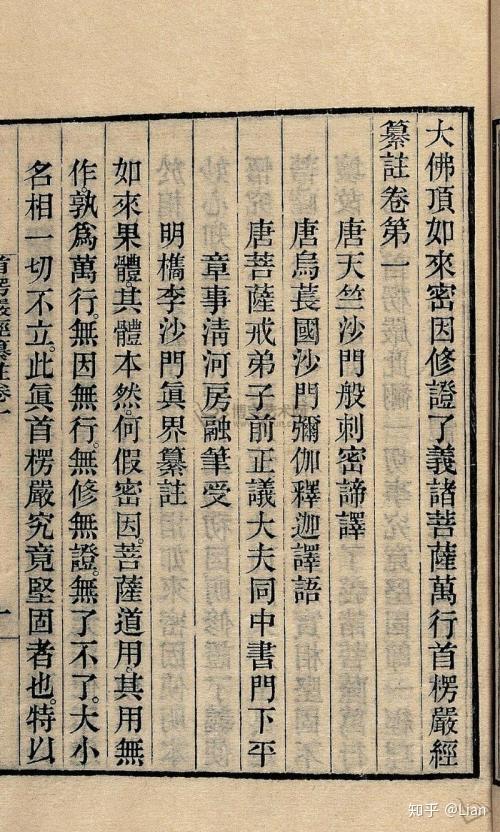 大佛頂如來密因修證了義諸菩薩萬行首楞嚴經
纂註卷第一
唐天竺沙門般剌密諦譯
唐烏萇國沙門彌伽釋迦譯語
唐菩薩戒弟子前正議大夫同中書門下平
章事淸河房融筆受
明檇李沙門眞界纂註
如來果體。其體本然。何假密因。菩薩道用。其用無
作。孰爲萬行。無因無行。無修無證。無了不了。大小
名相一切不立。此眞首楞嚴究竟堅固者也。特以
首楞嚴經纂註卷一
一
知乎 @Lian